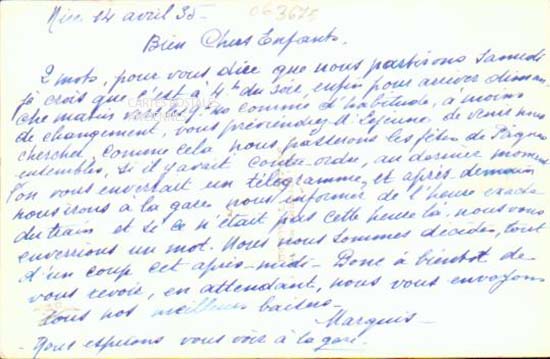 Nice 14 avril 35-
063675
Bien Chers Enfants.
2 mots, pour vous dire que nous partirons Samedi
je crois que c'est à 4h du soir, enfin pour arriver diman-
che matin vers les comme d'habitude, à moins
de changement, vous préviendrez de venir nous
chercher, comme cela nous passerons les fêtes de Pâques
ensembles, si il y avait contre-ordre, au dernier moment
l'on vous enverrait un télégramme, et après demain
nous irons à la gare nous informer de l'heure exacte
du train et si ce n'était pas cette heure là, nous vous
enverrions un mot. Nous nous sommes décidés, tout
d'un coup cet après-midi- Donc à bientôt de
vous revoir, en attendant, nous vous envoyons
tous nos meilleurs baisers-
Marquis-
- Nous espérons vous voir à la gare.